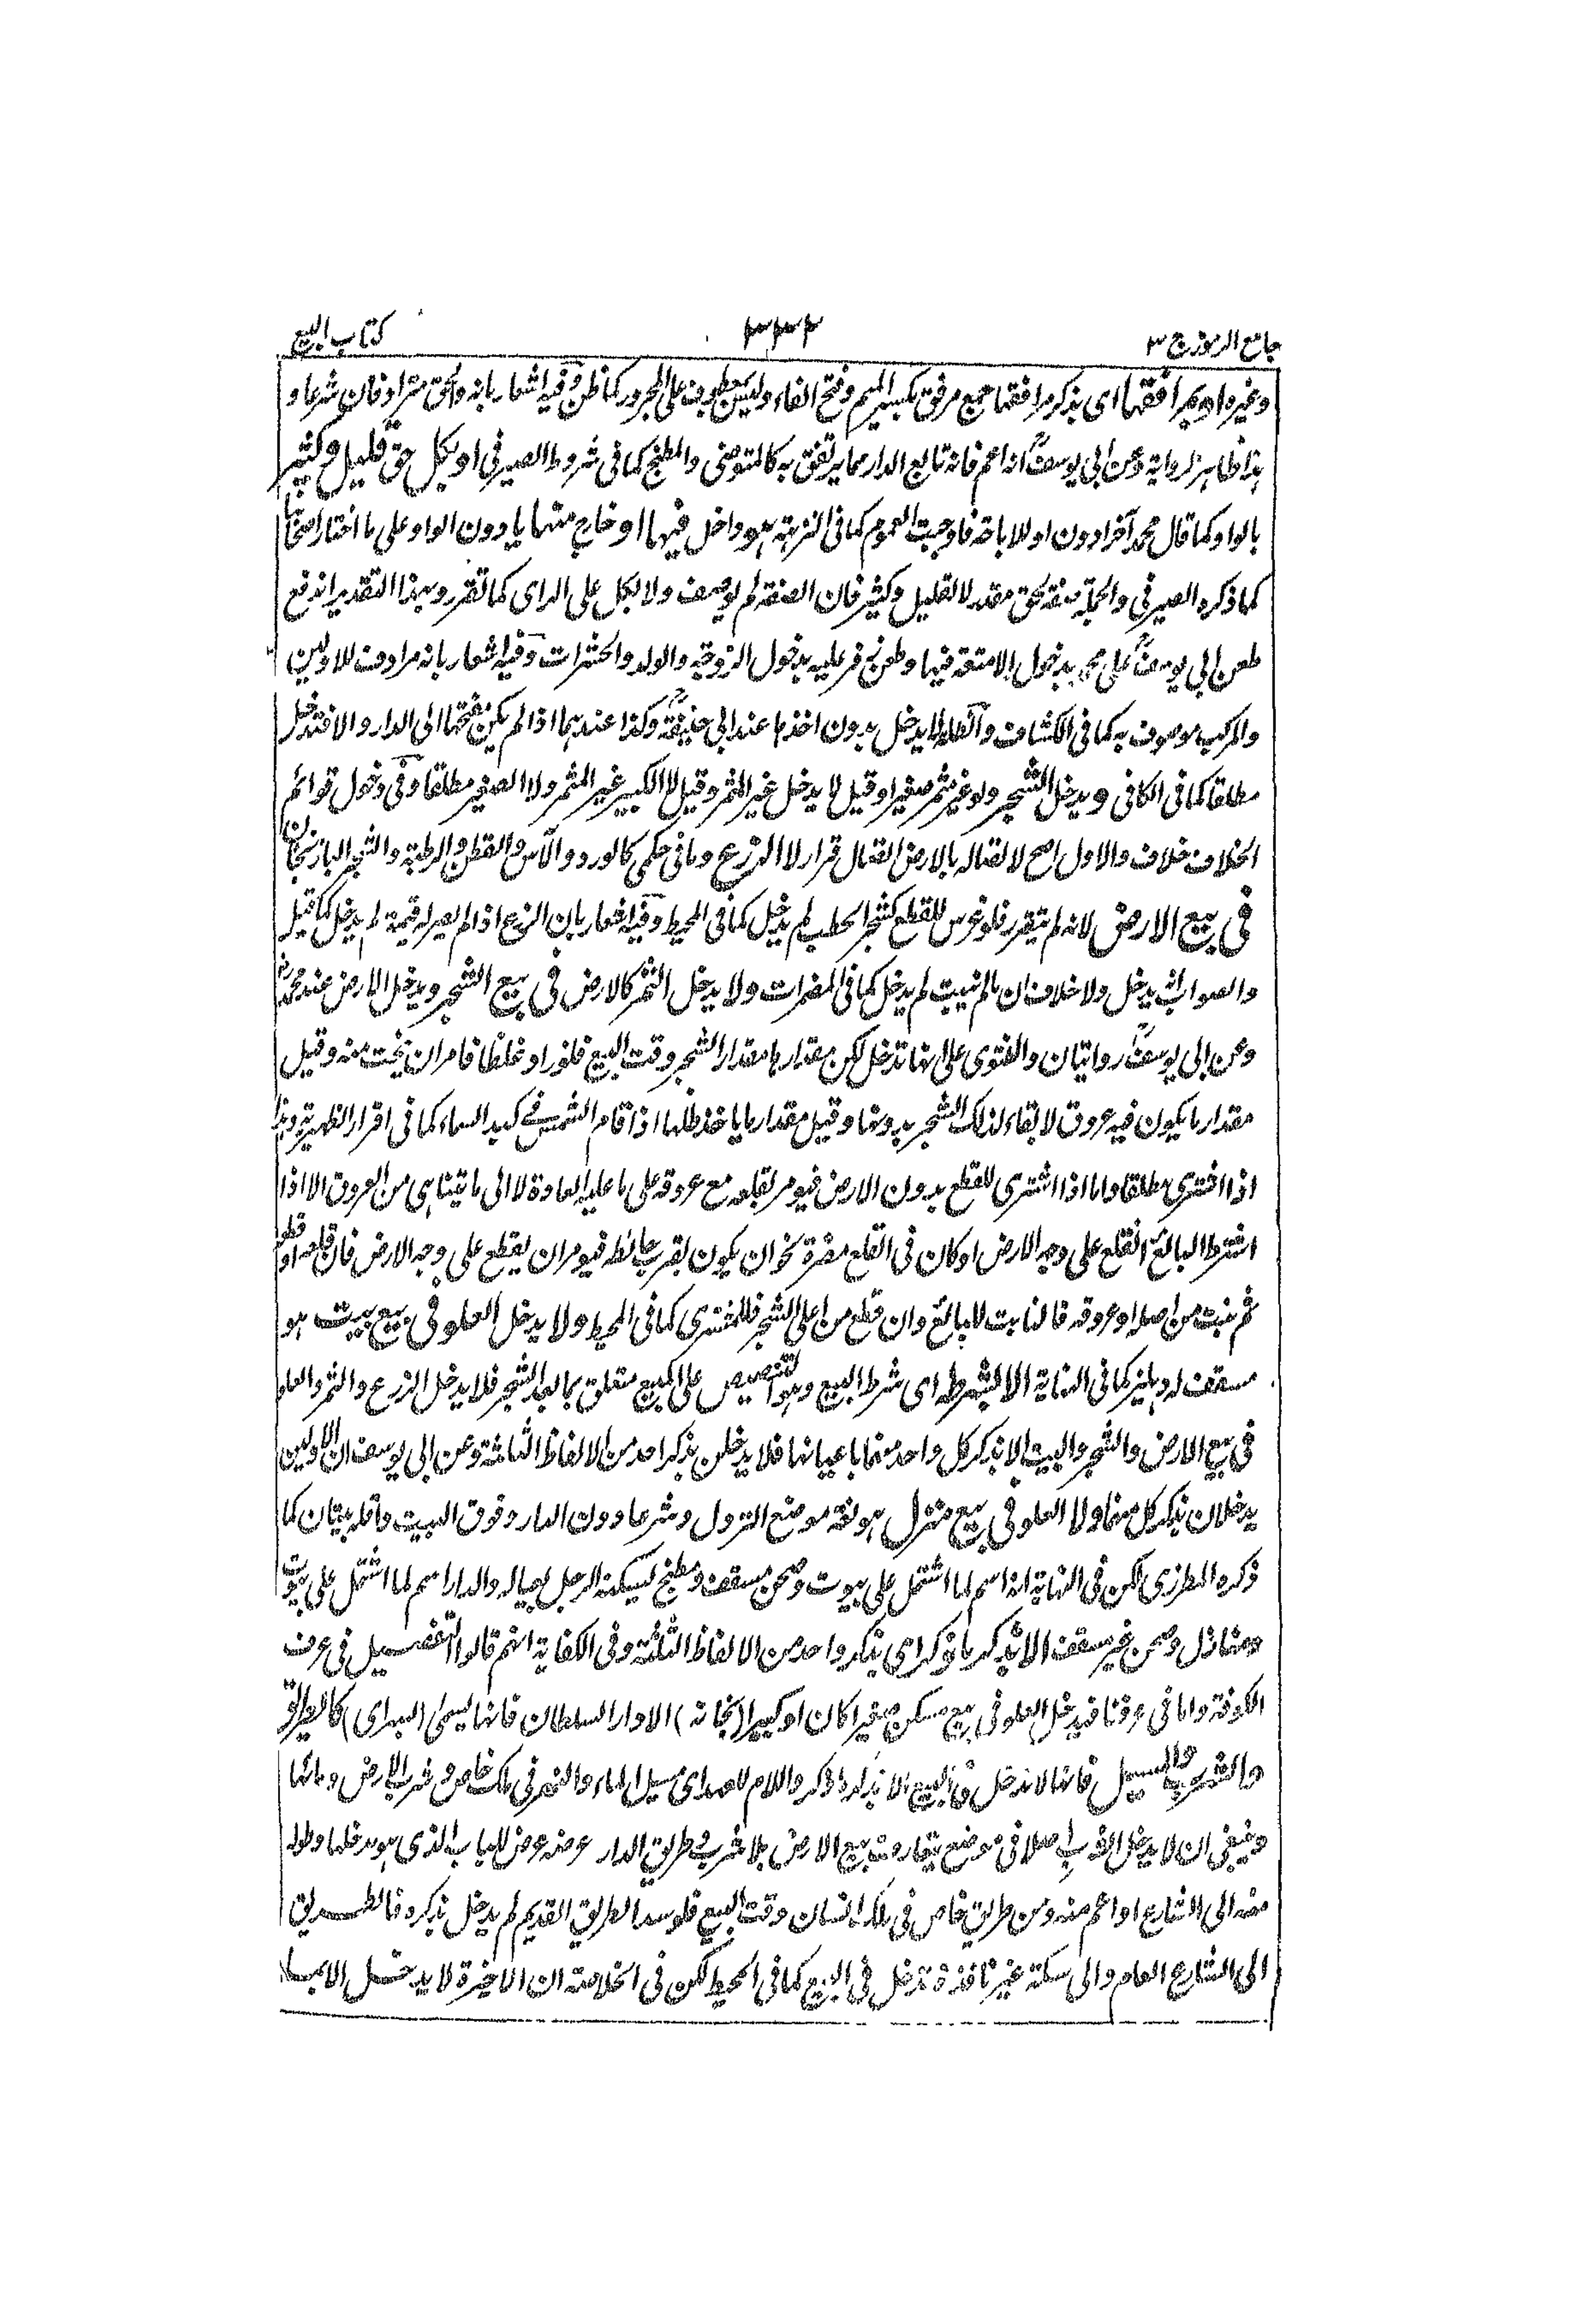 جامع الرموز ج ٣
٣٣٢
كتاب البيع
وغيره او بمرافقها اى يذكر مرافقها جمع مرفق بكسر الميم وفتح الفاء وليس بمعطوف على المجرور كما ظن وفيه اشعار بانه والحق مترادفان شرعا و
هذا ظاهر الرواية وعن ابى يوسف انه اعم فانه تابع الدار مما يرتفق به كالمتوضى والمطبخ كما فى شروط الصيرفى او بكل حق قليل وكثير
بالواو كما قال محمد آخرا دون او للاباحة فاوجبت العموم كما فى النزهة هو داخل فيها او خارج منها با دون الواو على ما اختار اصحابنا
كما ذكره الصيرفى والجملة صفة لحق مقدر لا لقليل وكثير فان الصفة لم يوصف ولا لكل على الراى كما تقرر وبهذا التقدير اندفع
طعن ابى يوسف على محمد بدخول الامتعة فيها وطعن زفر عليه بدخول الزوجة والولد والحشرات وفيه اشعار بانه مرادف للاولين
والمركب موصوف به كما فى الكشاف والظلة لا يدخل بدون اخذها عند ابى حنيفة وكذا عندهما اذا لم يكن مفتحها الى الدار والا فتدخل
مطلقا كما فى الكافى ويدخل الشجر ولو غير مثمر صغيرا وقيل لا يدخل غير المثمر وقيل لا الكبير غير المثمر ولا الصغير مطلقا وفى دخول قوائم
الخلاف خلاف والاول اصح لاتصاله بالارض اتصال قرار لا الزرع وما فى حكمه كالورد والآس والقطن والرطبة والشجر الباذنجان
فى بيع الارض لانه لم يتقرر فلو غرس للقطع كشجر الحطب لم يدخل كما فى المحيط وفيه اشعار بان الزرع اذا لم يصر له قيمة لم يدخل كما قيل
والصواب انه يدخل ولا خلاف ان ما لم ينبت لم يدخل كما فى المضمرات ولا يدخل الثمر كالارض فى بيع الشجر ويدخل الارض عند محمد
وعن ابى يوسف روايتان والفتوى على انها تدخل لكن مقدارها مقدار الشجر وقت البيع فلو زاد غلظا فامر ان ينحت منه وقيل
مقدار ما يكون فيه عروق لا بقاء لذلك الشجر بدونها وقيل مقدار ما ياخذ ظلها اذا قام الشمس فى كبد السماء كما فى اقرار الظهيرية وهذا
اذا اشترى مطلقا واما اذا اشترى للقطع بدون الارض فيومر بقلعه مع عروقه على ما عليه العادة لا الى ما يتناهى من العروق الا اذا
اشترط البائع القلع على وجه الارض او كان فى القلع مضرة نحو ان يكون بقرب حائطه فيومر ان يقطع على وجه الارض فان قلعه او قطع
ثم نبت من اصله او عروقه فالنابت للبائع وان قطع من اعلى الشجر فللمشترى كما فى المحيط ولا يدخل العلو فى بيع بيت هو
مسقف له دهليز كما فى النهاية الا بشرطه اى شرط البيع وهو التنصيص على المبيع متعلق بما بعد الشجر فلا يدخل الزرع والثمر والعلو
فى بيع الارض والشجر والبيت الا بذكر كل واحد منها باعيانها فلا يدخلن بذكر احد من الالفاظ الثلثة وعن ابى يوسف ان الاولين
يدخلان بذكر كل منها ولا العلو فى بيع منزل هو لغة موضع النزول وشرعا دون الدار وفوق البيت واقله بيتان كما
ذكره المطرزى لكن فى النهاية انه اسم لما اشتمل على بيوت وصحن مسقف ومطبخ ليسكنه الرجل بعياله والدار اسم لما اشتمل على بيوت
ومنازل وصحن غير مسقف الا بذكر ما ذكر اى بذكر واحد من الالفاظ الثلثة وفى الكفاية انهم قالوا التفصيل فى عرف
الكوفة واما فى عرفنا فيدخل العلو فى بيع مسكن صغيرا كان او كبيرا (بخانه) الا دار السلطان فانها يسمى (السراى) كالطريق
والشرب والمسيل فانها لا تدخل فى البيع الا بذكر ما ذكر واللام للعهد اى مسيل الماء والنهر فى ملك خاص وشرب الارض ومائها
وينبغى ان لا يدخل الشرب اصلا فى موضع يتعارف بيع الارض بلا شرب وطريق الدار عرضه عرض للباب الذى هو مدخلها وطوله
منه الى الشارع او اعم منه ومن طريق خاص فى ملك انسان وقت البيع فلو سد الطريق القديم لم يدخل بذكره فالطريق
الى الشارع العام والى سكة غير نافذة تدخل فى البيع كما فى المحيط لكن فى الخلاصة ان الاخيرة لا يدخل الا بما